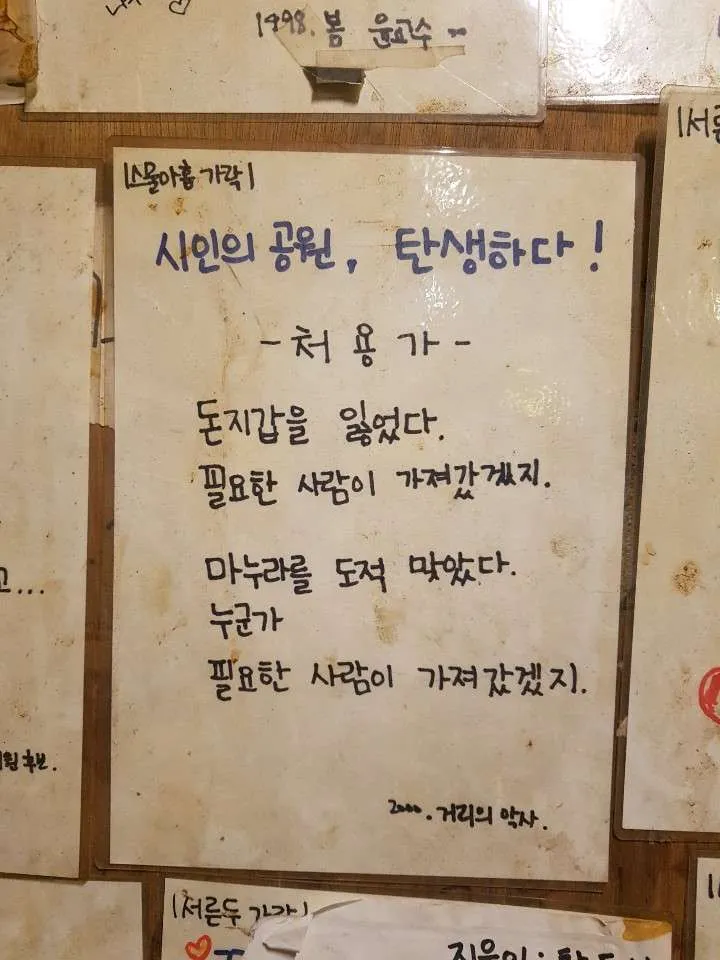 1998. 봄 윤교수
|스물아홉 가락|
시인의 공원, 탄생하다!
-처용가-
돈지갑을 잃었다.
필요한 사람이 가져갔겠지.
마누라를 도적 맞았다.
누군가
필요한 사람이 가져갔겠지.
2000. 거리의 악사.
고...
후보.
|서른두 가락|